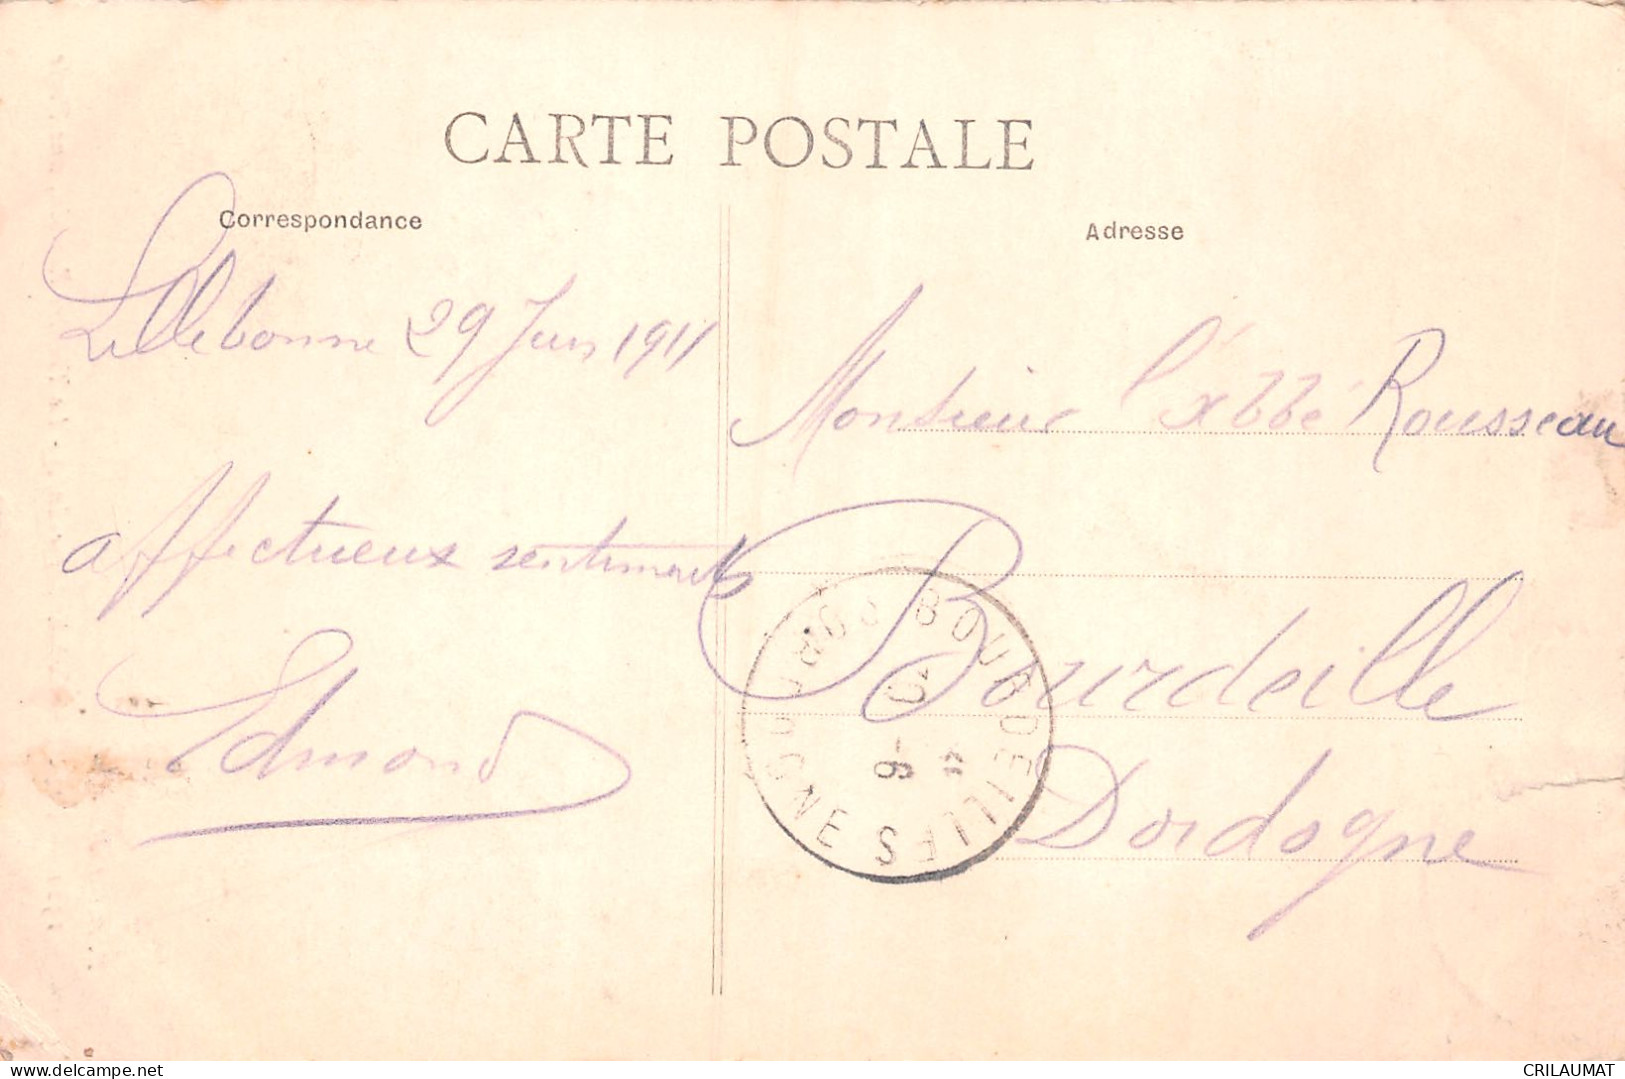 CARTE POSTALE
Correspondance
Lillebonne 29 Juin 1911
affectueux sentiments
Edmond
Adresse
Monsieur l'abbé Rousseau
Bourdeille
Dordogne
BOURDEILLES
DORDOGNE
-6
delcampe.net
CRILAUMAT